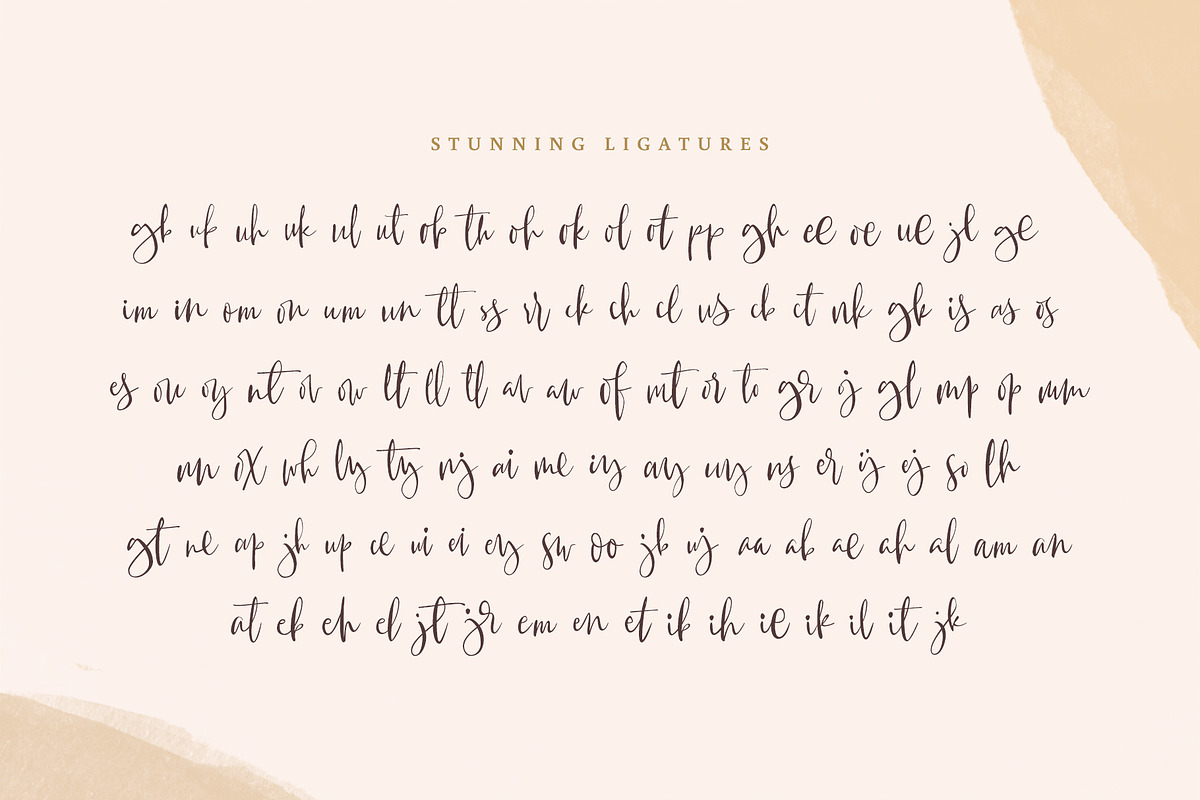 STUNNING LIGATURES
gb ub uh uk ul ut ob th oh ok ol ot pp gh ee oe ue jl ge
im in om on um un tt ss rr ck ch cl us cb ct nk gk is as os
es ou oy nt ov ow lt ll tl av aw of mt or to gr ij gl mp op mm
nn ox wh ly ty nj ai me iy ay uy ns er ij ej so lh
gt ne ap jh up ce ui ei ey sw oo jb uj aa ab ae ah al am an
at eb eh el jt jr em en et ib ih ie ik il it jk